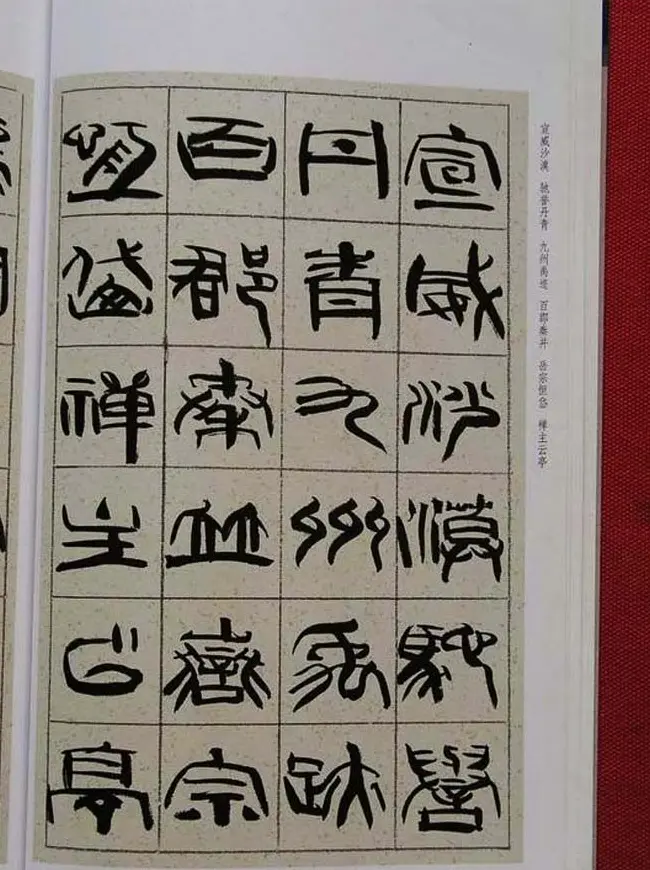 宣威沙漠 驰誉丹青 九州禹迹 百郡秦并 岳宗恒岱 禅主云亭
宣威沙漠馳譽
丹青九州禹跡
百郡秦並嶽宗
恆岱禪主云亭